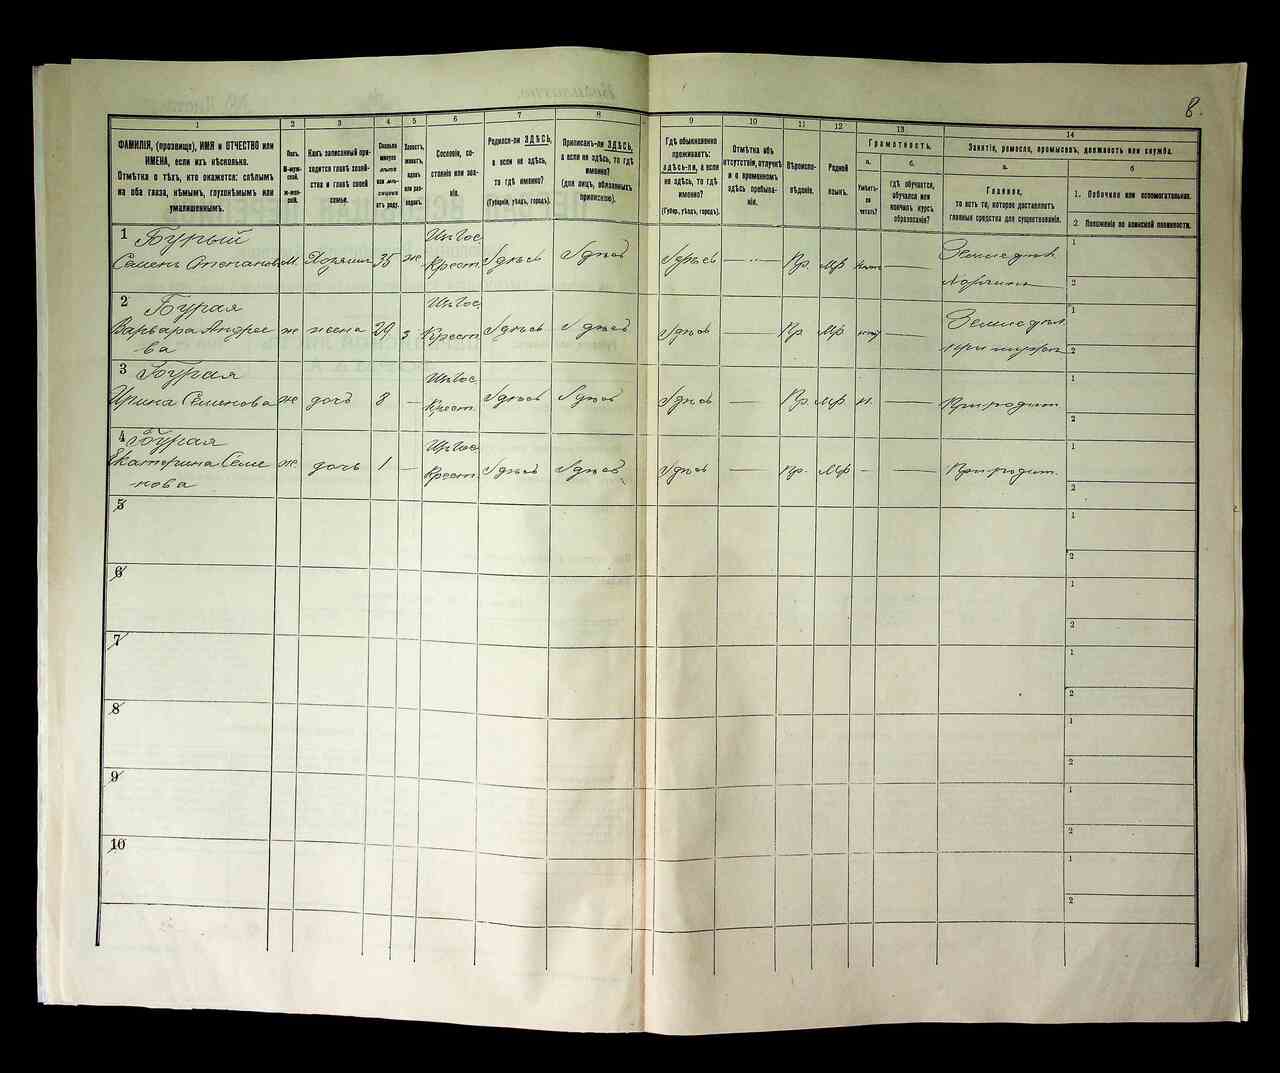 8.
1 2 3 4 5 6 7 8 9 10 11 12 13 14
ФАМИЛІЯ, (прозвище), ИМЯ и ОТЧЕСТВО или
ИМЕНА, если ихъ нѣсколько.
Отмѣтка о тѣхъ, кто окажется: слѣпымъ
на оба глаза, нѣмымъ, глухонѣмымъ или
умалишеннымъ.
Полъ.
М-муж-
ской.
ж-жен-
скій.
Какъ записанный при-
ходится главѣ хозяй-
ства и главѣ своей
семьи.
Сколько
минуло
лѣтъ
или мѣ-
сяцевъ
отъ роду.
Холостъ,
женатъ,
вдовъ
или раз-
веденъ.
Сословіе, со-
стояніе или зва-
ніе.
Родился-ли ЗДѢСЬ,
а если не здѣсь,
то гдѣ именно?
(Губернія, уѣздъ, городъ).
Приписанъ-ли ЗДѢСЬ,
а если не здѣсь, то гдѣ
именно?
(для лицъ, обязанныхъ
припискою).
Гдѣ обыкновенно
проживаетъ:
здѣсь-ли, а если
не здѣсь, то гдѣ
именно?
(Губер., уѣздъ, городъ).
Отмѣтка объ
отсутствіи, отлучкѣ
и о временномъ
здѣсь пребыва-
ніи.
Вѣроиспо-
вѣданіе.
Родной
языкъ.
Грамотность.
а.
Умѣетъ-
ли
читать?
б.
гдѣ обучается,
обучался или
кончилъ курсъ
образованія?
Занятіе, ремесло, промыселъ, должность или служба.
а.
Главное,
то есть то, которое доставляетъ
главныя средства для существованія.
б
1. Побочное или вспомогательное.
2. Положеніе по воинской повинности.
1 Бурый Изъ Гос. Земледѣл. 1
Семенъ Степановъ М. Хозяинъ 35 ж Крест. Здѣсь Здѣсь Здѣсь — Пр. Мр —
2
2 Бурая Изъ Гос. Земледѣл. 1
Варвара Андрее ж жена 29 з Крест. Здѣсь Здѣсь Здѣсь — Пр Мр —
ва 2
3 Бурая Изъ Гос. 1
Ирина Семенова ж дочь 8 — Крест. Здѣсь Здѣсь Здѣсь — Пр. Мр н. — При родит.
2
4 Бурая Изъ Гос. 1
Екатерина Семе ж дочь 1 — Крест. Здѣсь Здѣсь Здѣсь — Пр. Мр - — При родит.
нова 2
5 1
2
6 1
2
7 1
2
8 1
2
9 1
2
10 1
2